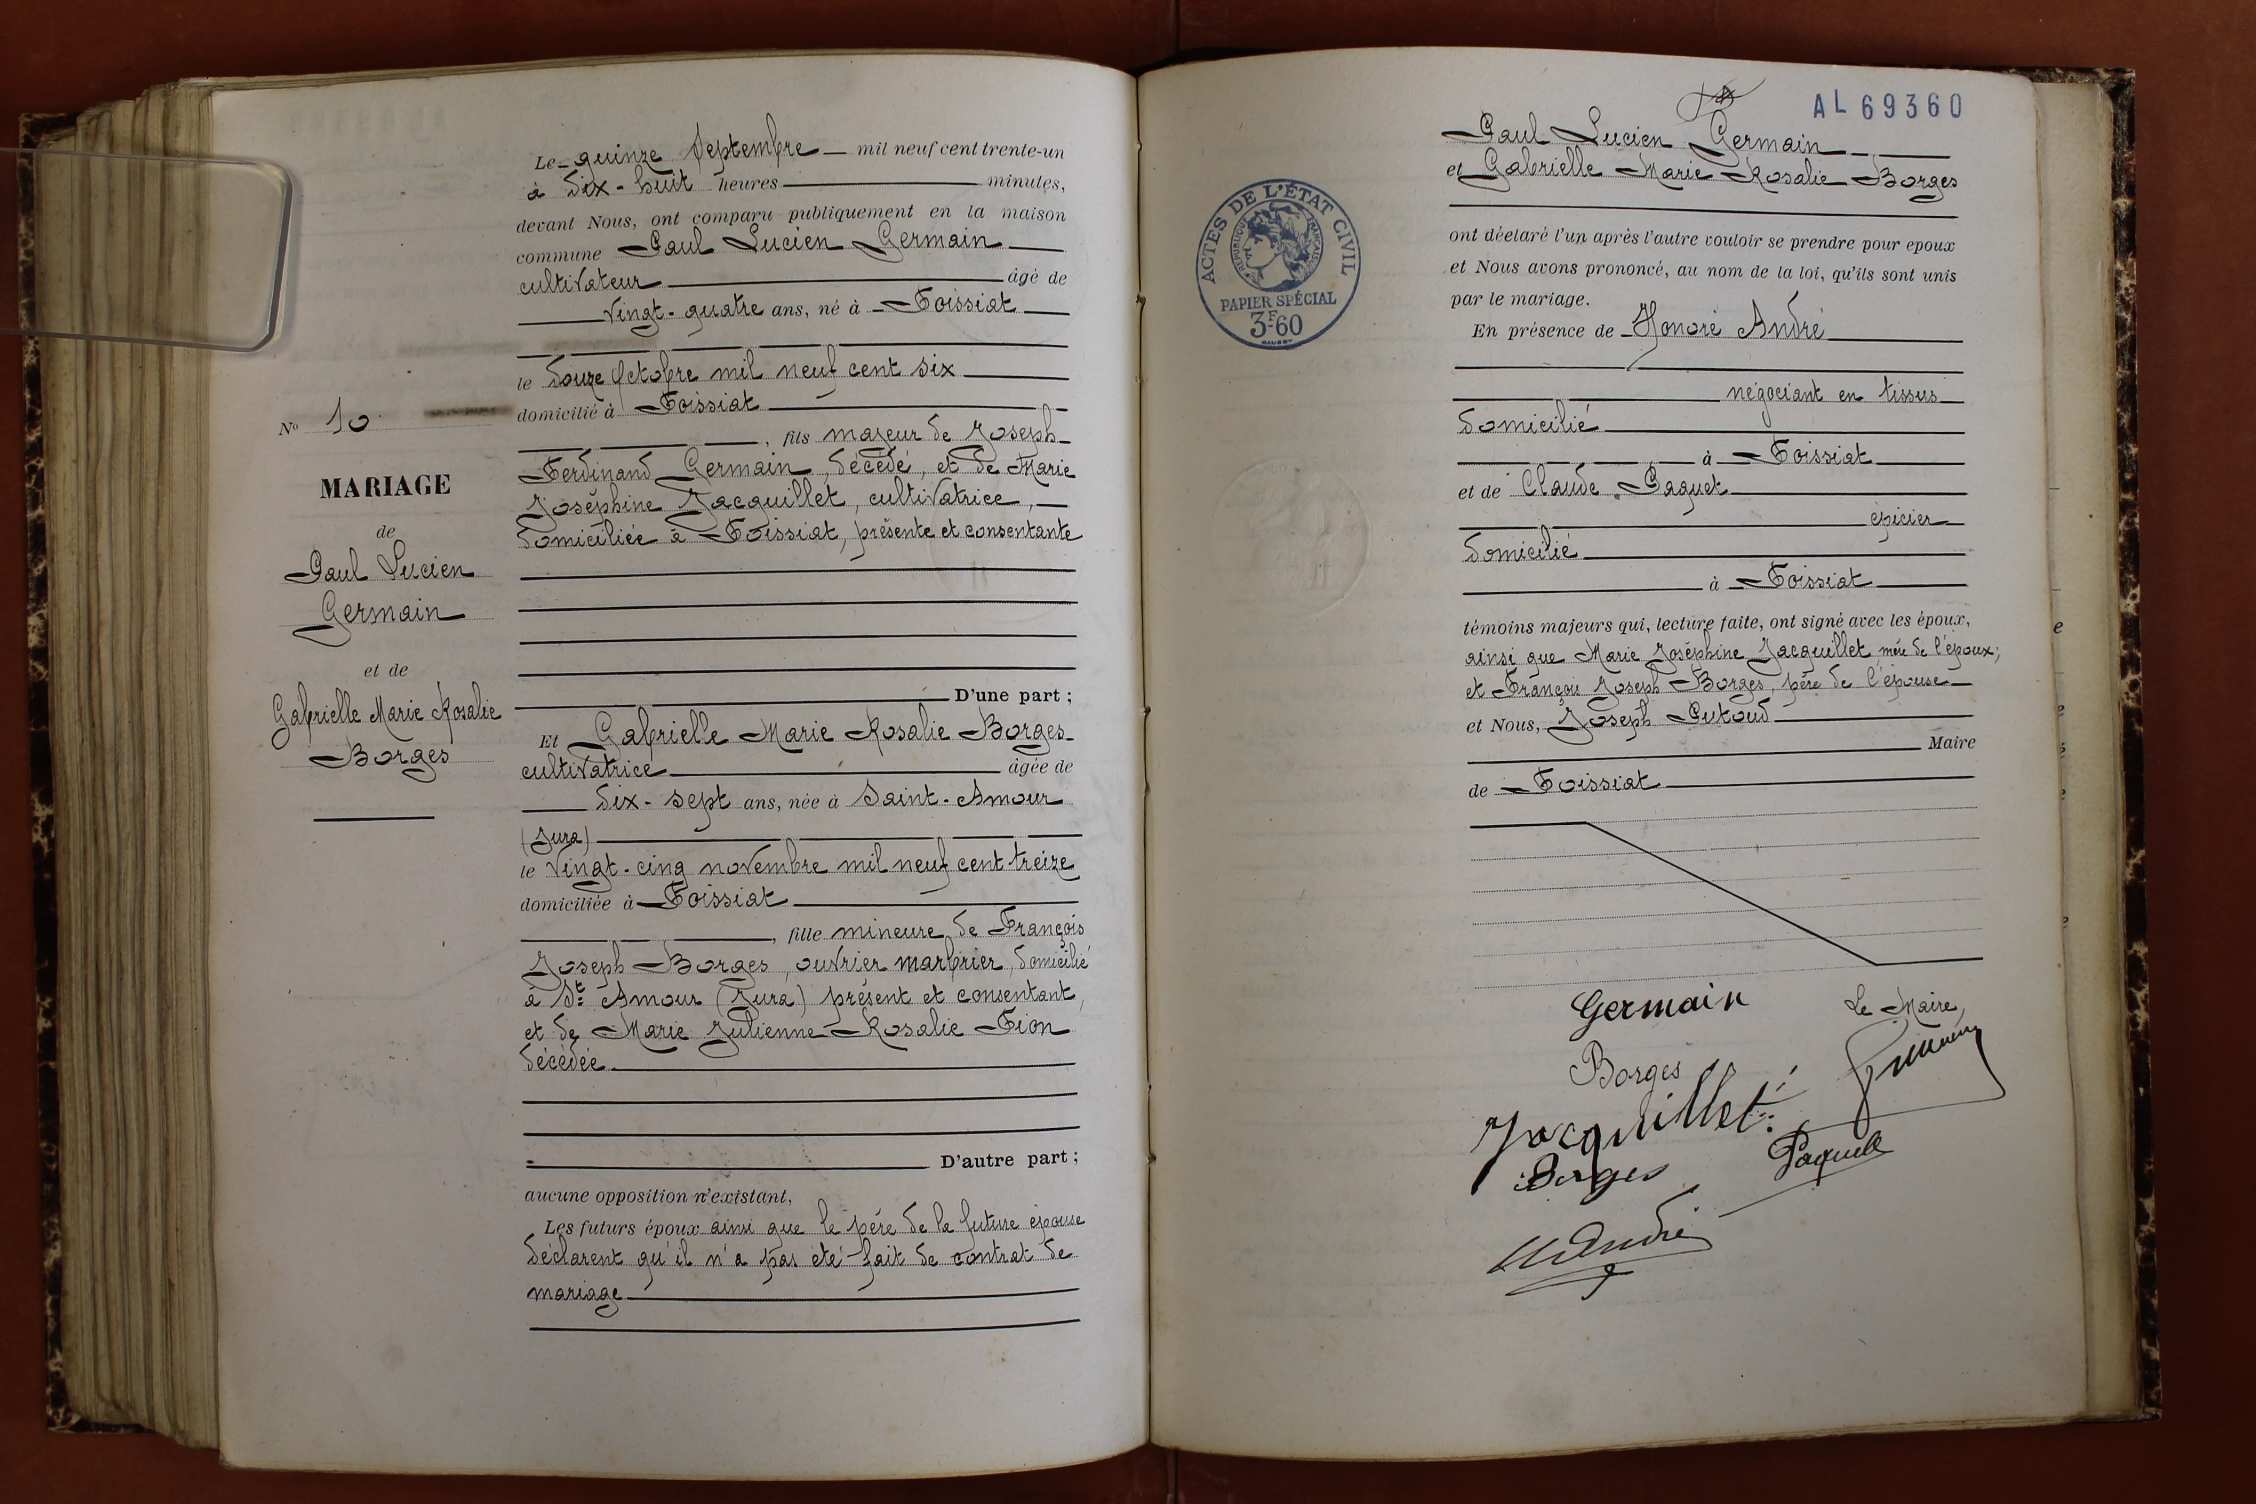 Le quinze Septembre mil neuf cent trente-un
à dix-huit heures minutes,
devant Nous, ont comparu publiquement en la maison
commune Paul Lucien Germain
cultivateur âgé de
vingt-quatre ans, né à Foissiat
le douze Octobre mil neuf cent six
domicilié à Foissiat
, fils majeur de Joseph
Ferdinand Germain, décédé, et de Marie
Joséphine Jacquillet, cultivatrice,
domiciliée à Foissiat, présente et consentante
D'une part ;
Et Gabrielle Marie Rosalie Borges
cultivatrice âgée de
dix-sept ans, née à Saint-Amour
(Jura)
le vingt-cinq novembre mil neuf cent treize
domiciliée à Foissiat
, fille mineure de François
Joseph Borges, ouvrier marbrier, domicilié
à St Amour (Jura) présent et consentant,
et de Marie Julienne Rosalie Fion
décédée
D'autre part ;
aucune opposition n'existant,
Les futurs époux ainsi que le père de la future épouse
déclarent qu'il n'a pas été fait de contrat de
mariage
No 10
MARIAGE
de
Paul Lucien
Germain
et de
Gabrielle Marie Rosalie
Borges
AL 69360
Paul Lucien Germain
et Gabrielle Marie Rosalie Borges
ont déclaré l'un après l'autre vouloir se prendre pour epoux
et Nous avons prononcé, au nom de la loi, qu'ils sont unis
par le mariage.
En présence de Honoré André
négociant en tissus
domicilié
à Foissiat
et de Claude Paquet
épicier
domicilié
à Foissiat
témoins majeurs qui, lecture faite, ont signé avec les époux,
ainsi que Marie Joséphine Jacquillet, mère de l'époux,
et François Joseph Borges, père de l'épouse
et Nous, Joseph Putoud
Maire
de Foissiat
ACTES DE L'ÉTAT CIVIL
RÉPUBLIQUE FRANÇAISE
PAPIER SPÉCIAL
3F60
Germain
Le Maire,
Borges
Jacquillet
Borges
Paquet
André